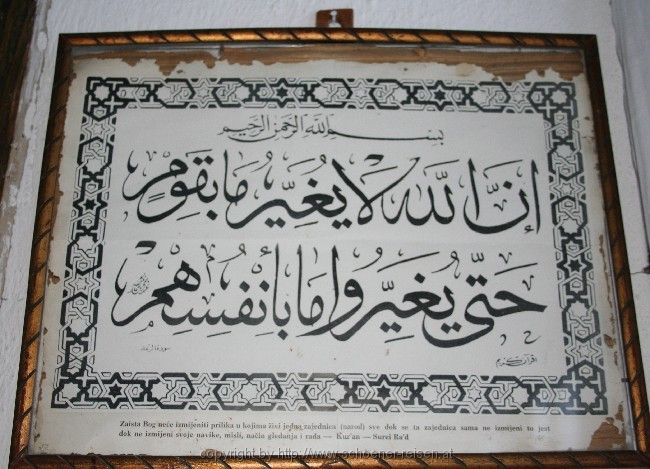 بِسْمِ اللهِ الرَّحْمٰنِ الرَّحِيمِ
إِنَّ اللهَ لَا يُغَيِّرُ مَا بِقَوْمٍ
حَتَّى يُغَيِّرُوا مَا بِأَنْفُسِهِمْ
قرآن كريم
سورة الرعد
Zaista Bog neće izmijeniti prilika u kojima živi jedna zajednica (narod) sve dok se ta zajednica sama ne izmijeni to jest
dok ne izmijeni svoje navike, misli, način gledanja i rada — Kur'an — Surei Ra'd
copyright by http://www.schoener-reisen.at